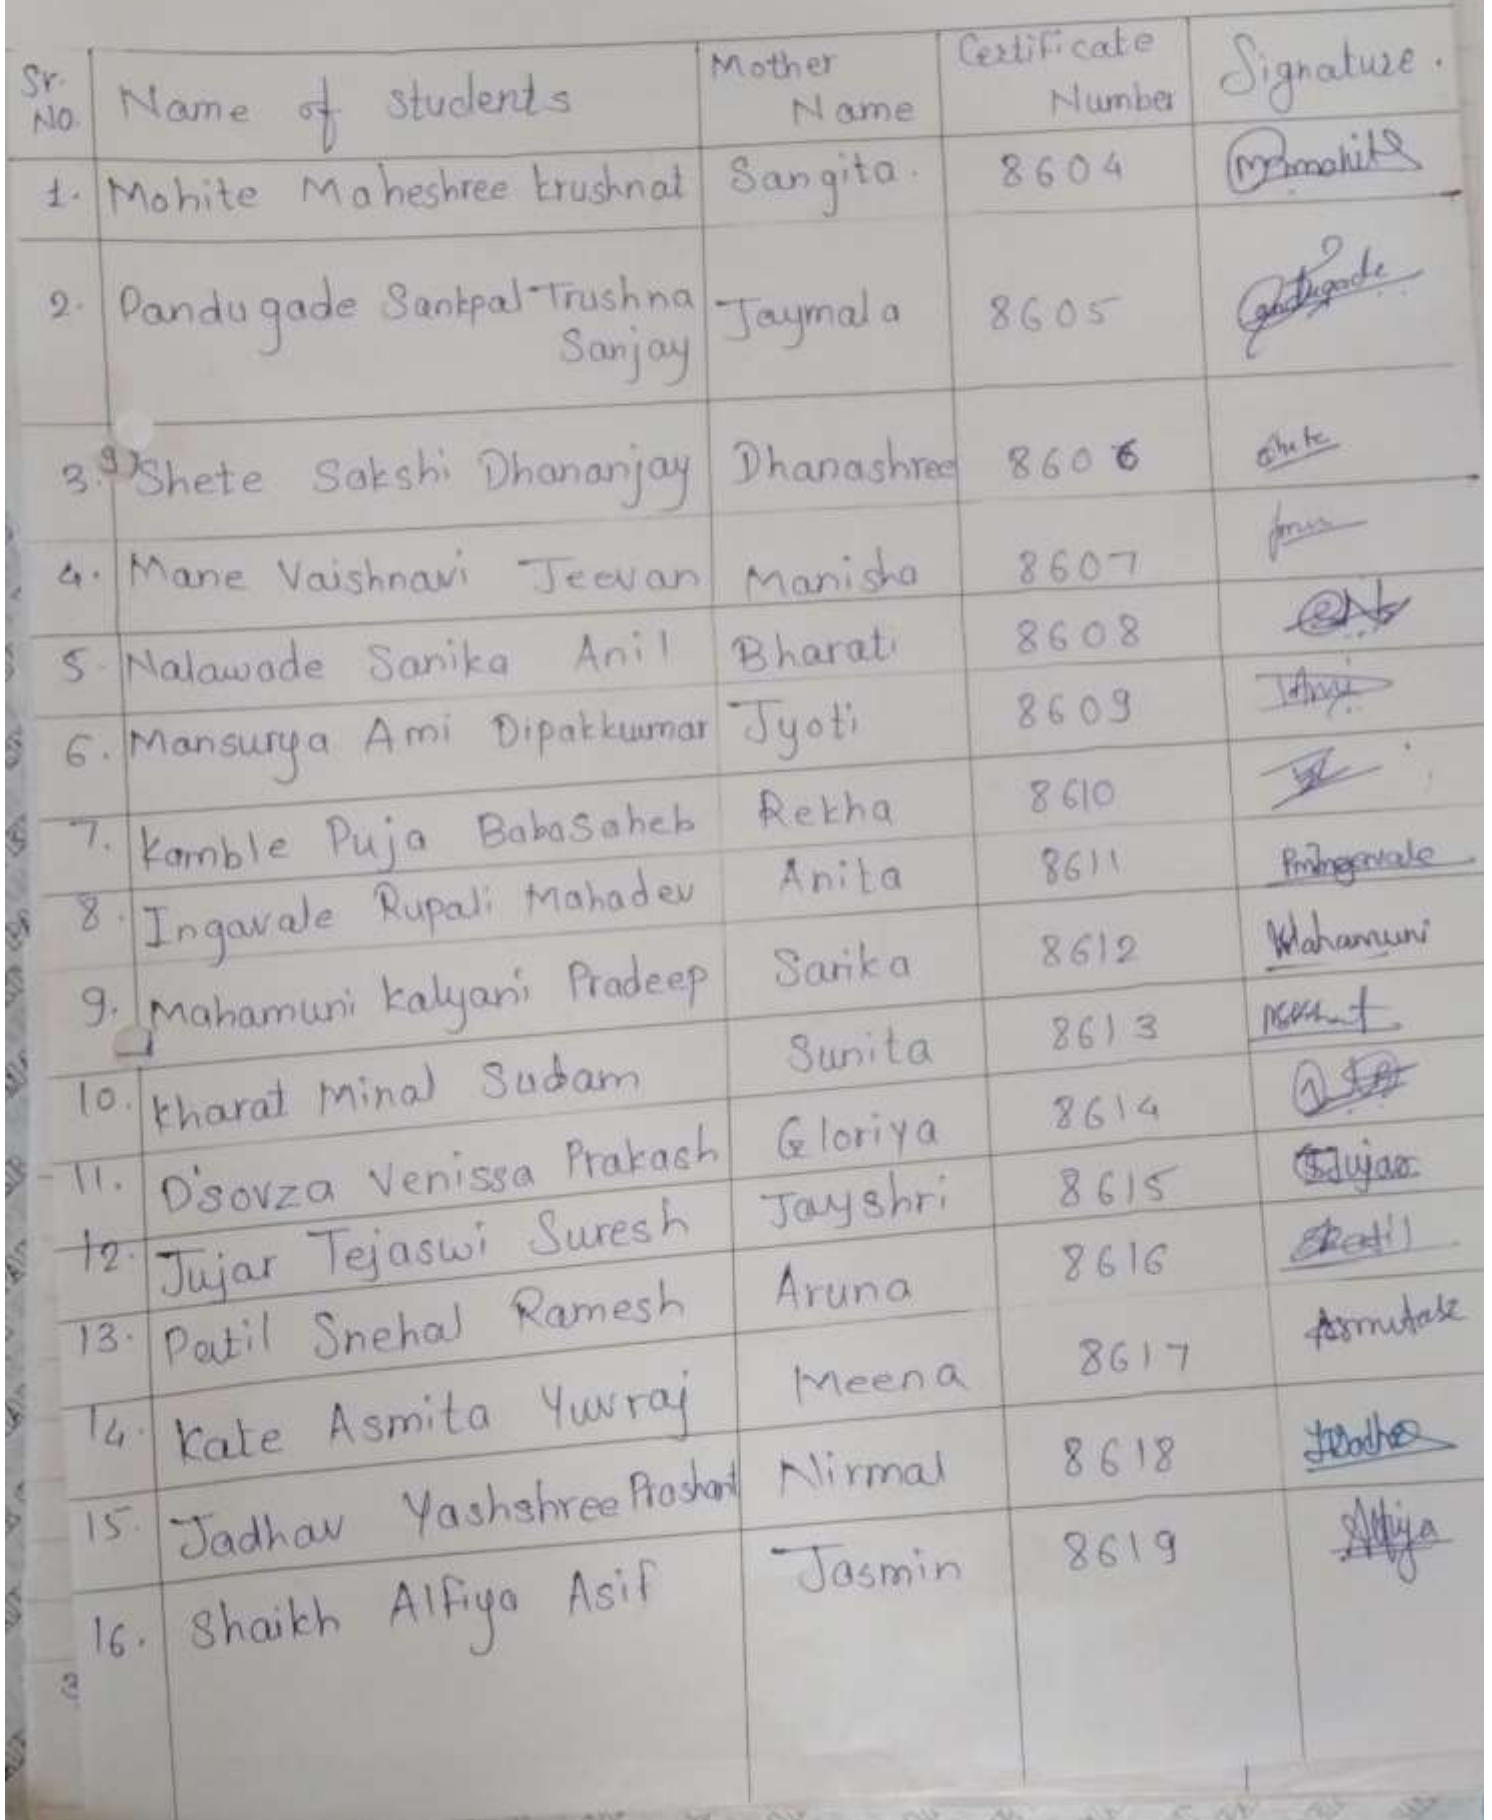 Sr. No. Name of students Mother Name Certificate Number Signature.
1. Mohite Maheshree krushnat Sangita. 8604
2. Pandugade Sankpal Trushna Jaymala 8605
Sanjay
3. Shete Sakshi Dhananjay Dhanashree 8606 Shete
4. Mane Vaishnavi Jeevan Manisha 8607
5. Nalawade Sanika Anil Bharati 8608
6. Mansurya Ami Dipakkumar Jyoti 8609
7. Kamble Puja Babasaheb Rekha 8610
8. Ingavale Rupali Mahadev Anita 8611
9. Mahamuni Kalyani Pradeep Sarika 8612
10. Kharat Minal Sudam Sunita 8613
11. D'sovza Venissa Prakash Gloriya 8614
12. Jujar Tejaswi Suresh Jayshri 8615
13. Patil Snehal Ramesh Aruna 8616
14. Kate Asmita Yuvraj Meena 8617
15. Jadhav Yashshree Prashant Nirmal 8618
16. Shaikh Alfiya Asif Jasmin 8619 Alfiya